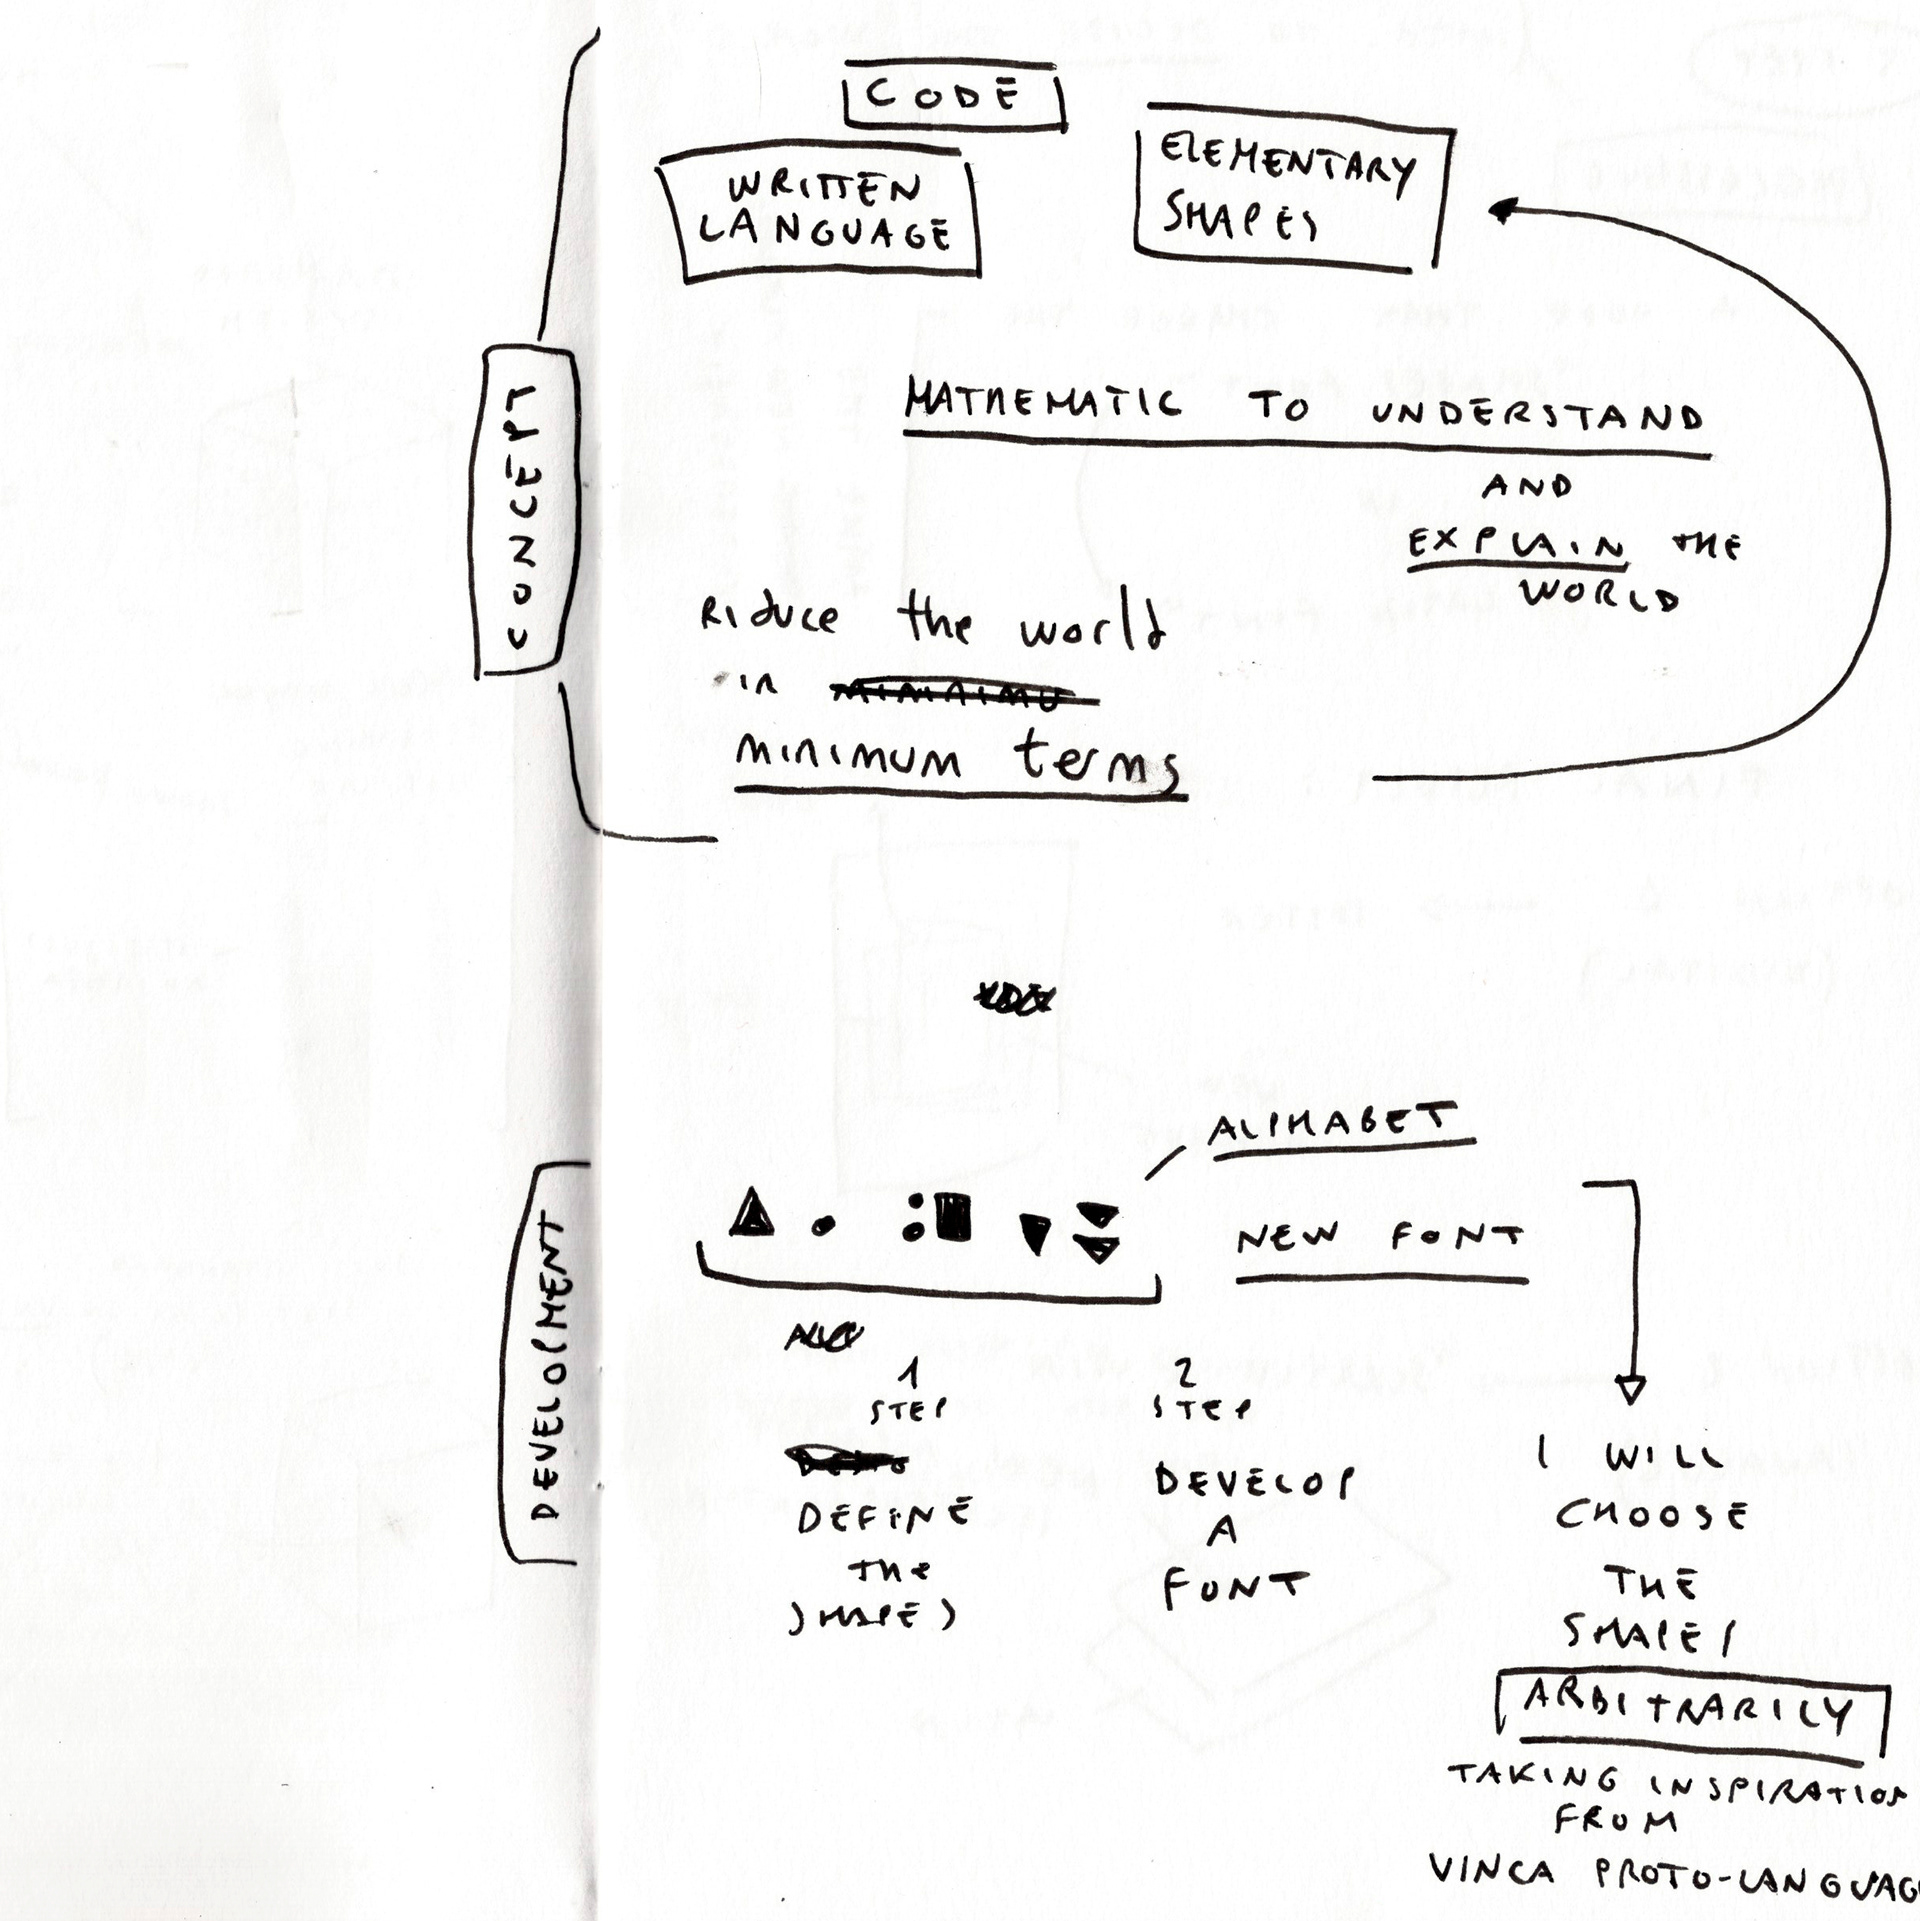 CODE
WRITTEN
LANGUAGE
ELEMENTARY
SHAPES
CONCEPT
MATHEMATIC TO UNDERSTAND
AND
EXPLAIN THE
WORLD
RIDUCE the world
in
MINIMUM terms
ALPHABET
NEW FONT
DEVELOPMENT
1
STEP
DEFINE
THE
SHAPES
2
STEP
DEVELOP
A
FONT
I WILL
CHOOSE
THE
SHAPES
ARBITRARILY
TAKING INSPIRATION
FROM
VINCA PROTO-LANGUAG